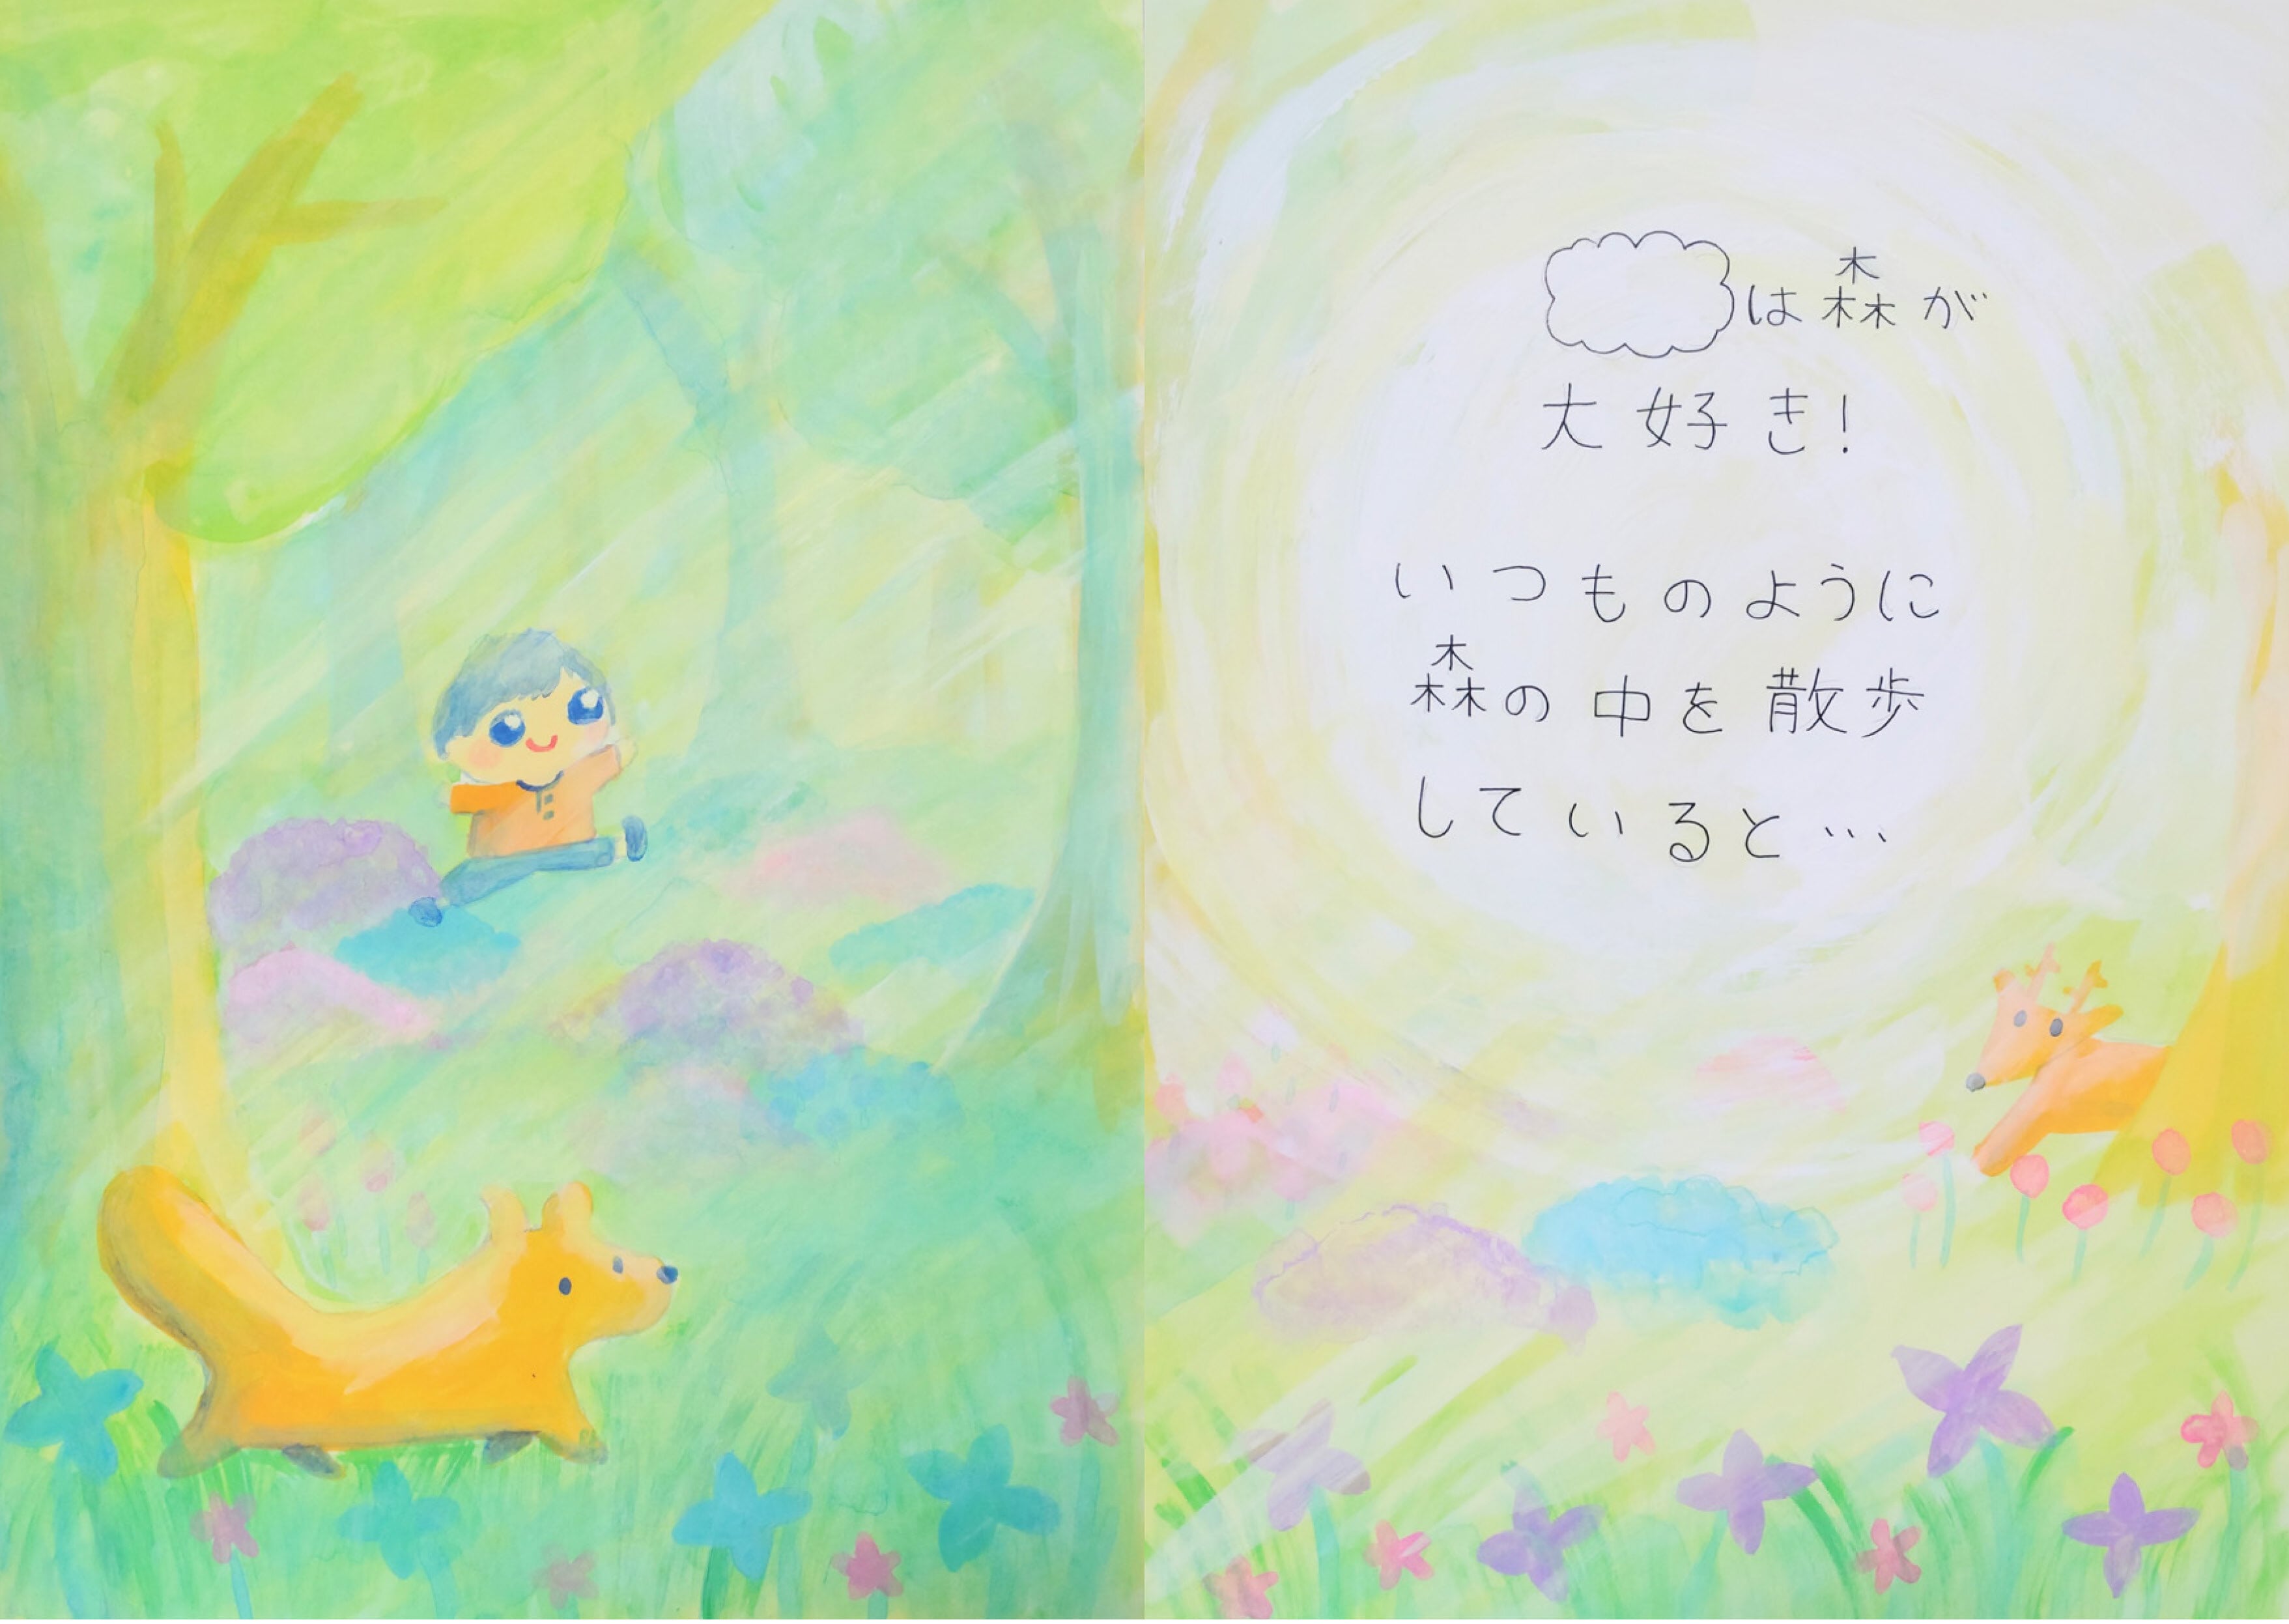 は森が
大好き!
いつものように
森の中を散歩
していると…